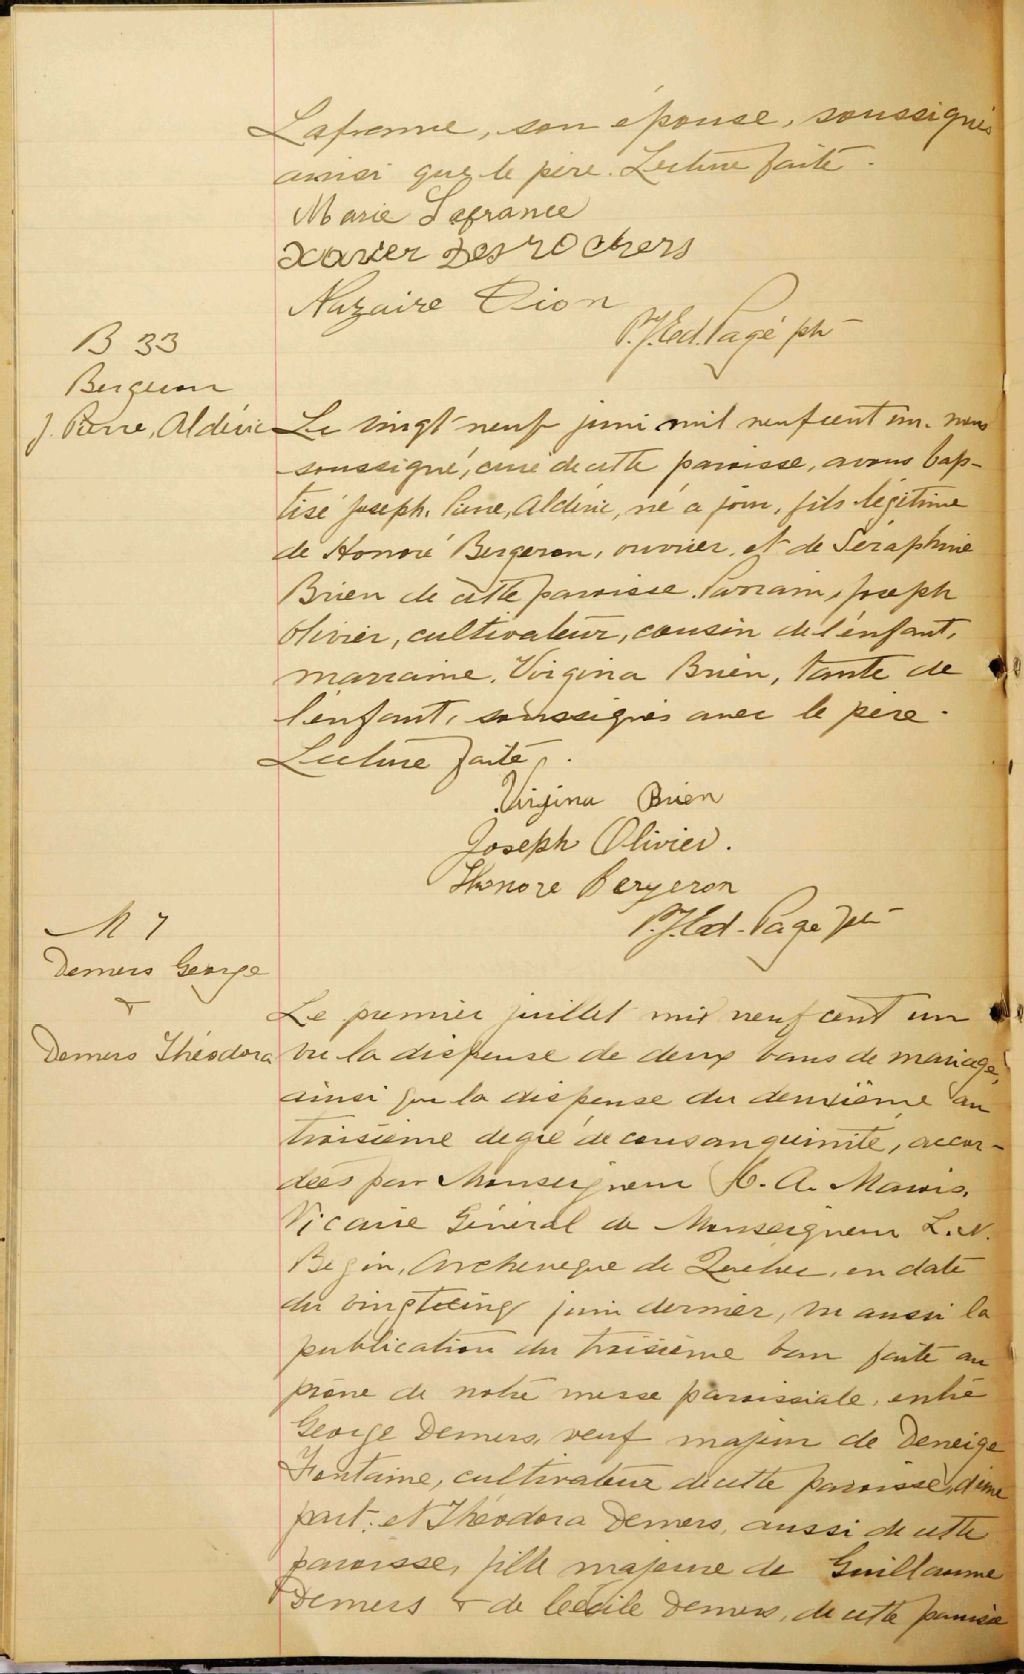 Lafrance, son épouse, soussignés
ainsi que le père. Lecture faite.
Marie Lafrance
Xavier DesroChers
Nazaire Dion
P.J.Ed. Pagé ptre
B 33
Bergeron
J. Pierre, Aldéric
Le vingt neuf juin mil neuf cent un. nous
soussigné, curé de cette paroisse, avons bap-
tisé Joseph, Pierre, Aldéric, né ce jour, fils légitime
de Honoré Bergeron, ouvrier, et de Séraphine
Brien de cette paroisse. Parrain, Joseph
Olivier, cultivateur, cousin de l'enfant,
marraine, Virgina Brien, tante de
l'enfant, soussignés avec le père.
Lecture faite.
Virgina Brien
Joseph Olivier.
Honore Bergeron
P.J.Ed. Page ptre
M 7
Demers George
&
Demers Théodora
Le premier juillet mil neuf cent un
vu la dispense de deux bans de mariage,
ainsi que la dispense du deuxième au
troisième degré de consanguinité, accor-
dées par Monseigneur C. A. Marois,
Vicaire Général de Monseigneur L. N.
Begin, Archeveque de Québec, en date
du vingtcinq juin dernier, vu aussi la
publication du troisième ban faite au
prône de notre messe paroissiale, entre
George Demers, veuf majeur de Deneige
Fontaine, cultivateur de cette paroisse, d'une
part, et Théodora Demers, aussi de cette
paroisse, fille majeure de Guillaume
Demers & de Cécile Demers, de cette paroisse